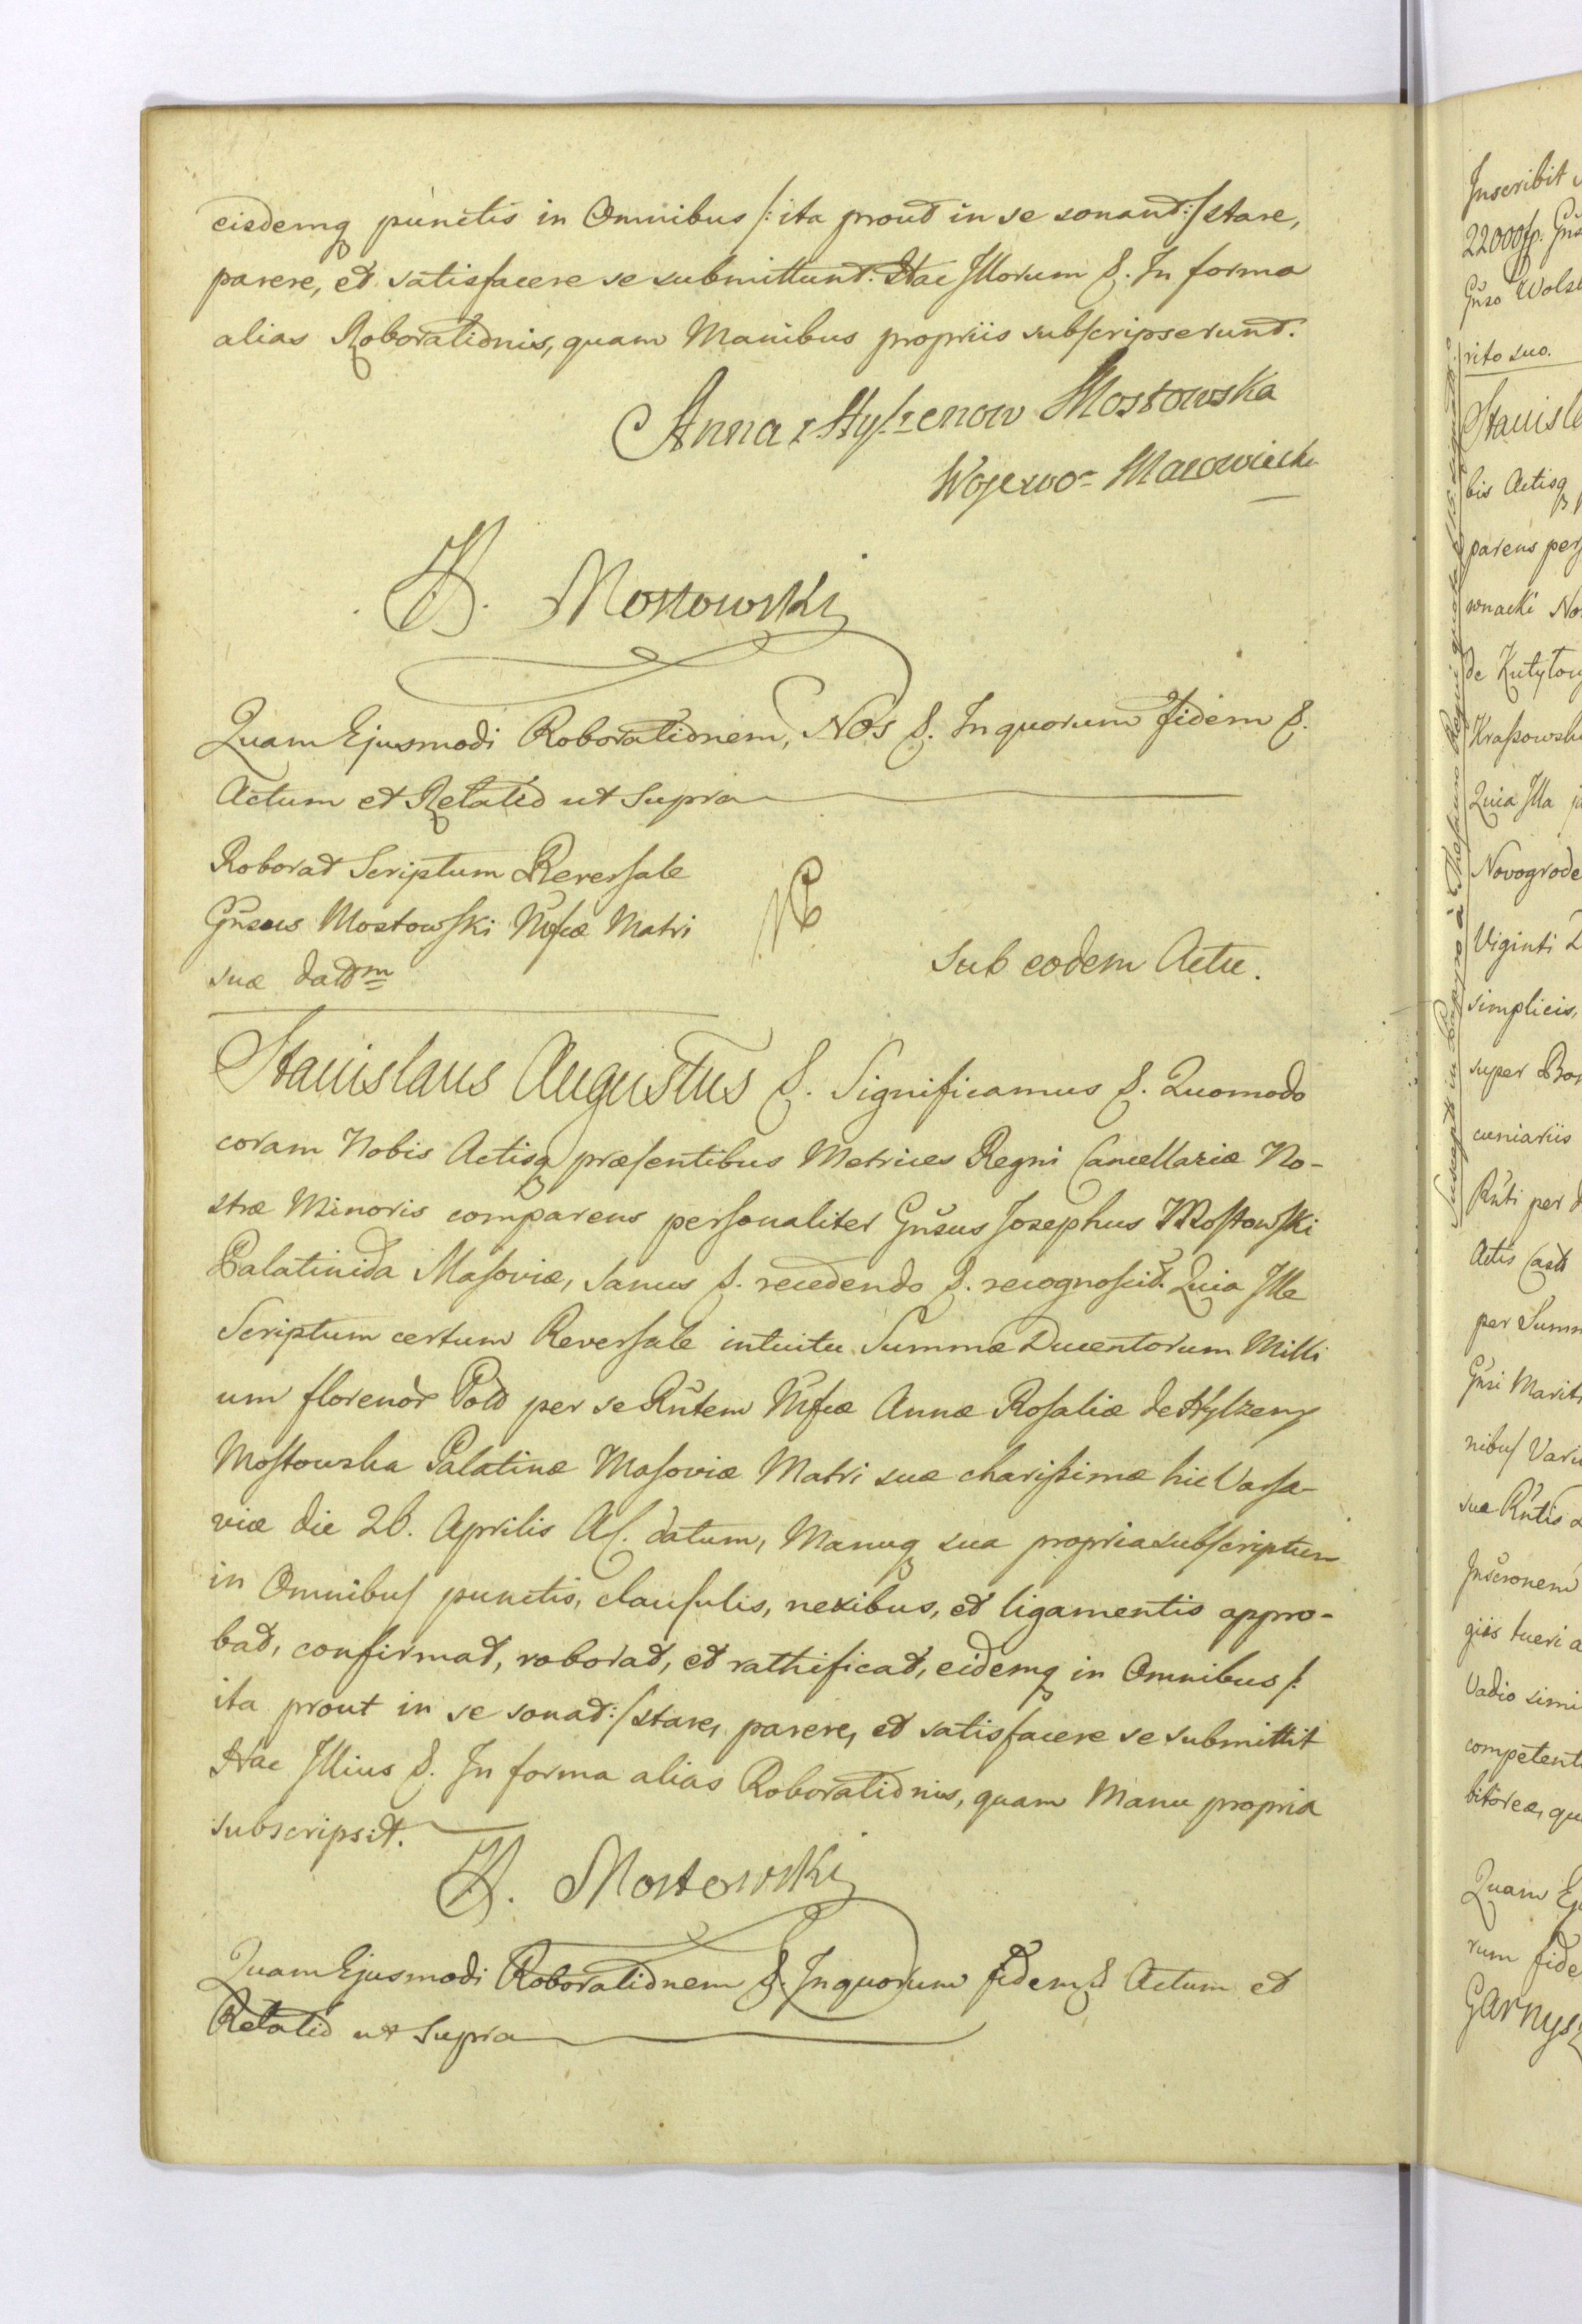 eisdemq punctis in Omnibus /: ita prout in se sonant :/ stare,
parere, et satisfacere se submittunt. Hac Illorum &. In forma
alias Roborationis, quam Manibus propriis subscripserunt.
Anna z Hylzenow Mostowska
Wojewo Mazowiecka
Mostowski
Quam Ejusmodi Roborationem, Nos &. In quorum fidem &.
Actum et Relatio ut Supra
Roborat Scriptum Reversale
Gnsus Mostowski Mfcæ Matri
suæ datm
Sub eodem Actu.
Stanislaus Augustus &. Significamus &. Quomodo
coram Nobis Actisq præsentibus Metrices Regni Cancellariæ No-
stræ Minoris comparens personaliter Gnsus Josephus Mostowski
Palatinida Masoviæ, sanus &. recedendo &. recognoscit. Quia Ille
Scriptum certum Reversale intuitu Summæ Ducentorum Milli
um florenor Pol per se Rntem Mfcæ Annæ Rosaliæ de Hylzeny
Mostowska Palatinæ Masoviæ Matri suæ charissimæ hic Varsa-
viæ die 26. Aprilis A. C. datum, Manuq sua propria subscriptum
in Omnibus punctis, clausulis, nexibus, et ligamentis appro-
bat, confirmat, roborat, et rathificat, eidemq in Omnibus /:
ita prout in se sonat :/ stare, parere, et satisfacere se submittit
Hac Illius &. In forma alias Roborationis, quam Manu propria
subscripsit.
Mostowski
Quam Ejusmodi Roborationem &. In quorum fidem & Actum et
Relatio ut Supra
Inscribit
22000fp.
rito suo.
bis Actisq
de
Quia Illa
Novogrode
Viginti
simplicis,
super
Rnti per
Actis
per Summ
Gnsi Marit
sua Rntis
giis tueri a
Vadio simi
competent
Quam Ej
rum fide
Garnysz